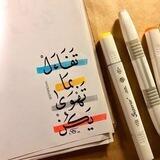 تَفَاءَلْ
بِمَا
تَهْوَى
يَكُنْ